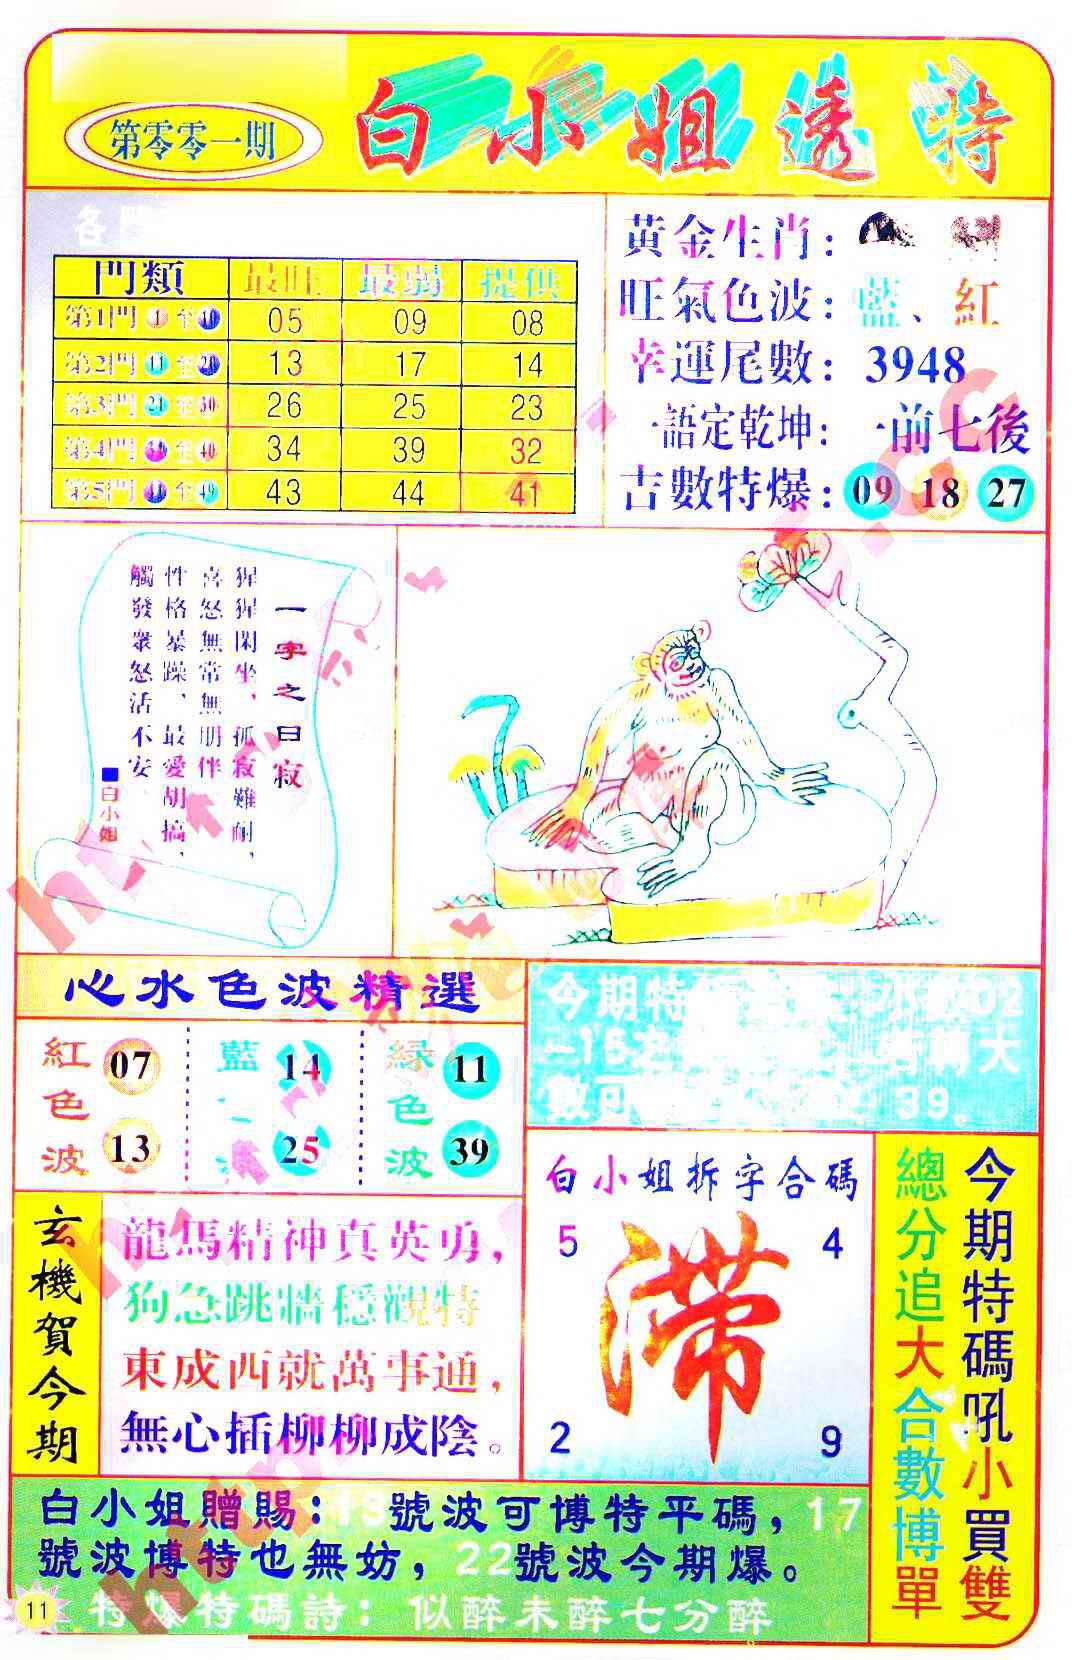 第零零一期
白小姐透特
各門
門類 最旺 最弱 提供
第1門 1至10 05 09 08
第2門 11至20 13 17 14
第3門 21至30 26 25 23
第4門 31至40 34 39 32
第5門 41至49 43 44 41
黃金生肖：
旺氣色波：藍、紅
幸運尾數：3948
一語定乾坤：一前七後
古數特爆：09 18 27
一字之曰寂
猩猩閑坐，孤寂難耐，
喜怒無常無朋伴
性格暴躁，最愛胡搞，
觸發衆怒活不安
■白小姐
心水色波精選
紅色波 07 13
藍 14 25
綠色波 11 39
今期特
02
大
數可
39。
玄機賀今期
龍馬精神真英勇，
狗急跳牆穩觀特
東成西就萬事通，
無心插柳柳成陰。
白小姐拆字合碼
5 4
滯
2 9
今期特碼吼小買雙
總分追大合數博單
白小姐贈賜：13號波可博特平碼，17
號波博特也無妨，22號波今期爆。
特爆特碼詩：似醉未醉七分醉
11